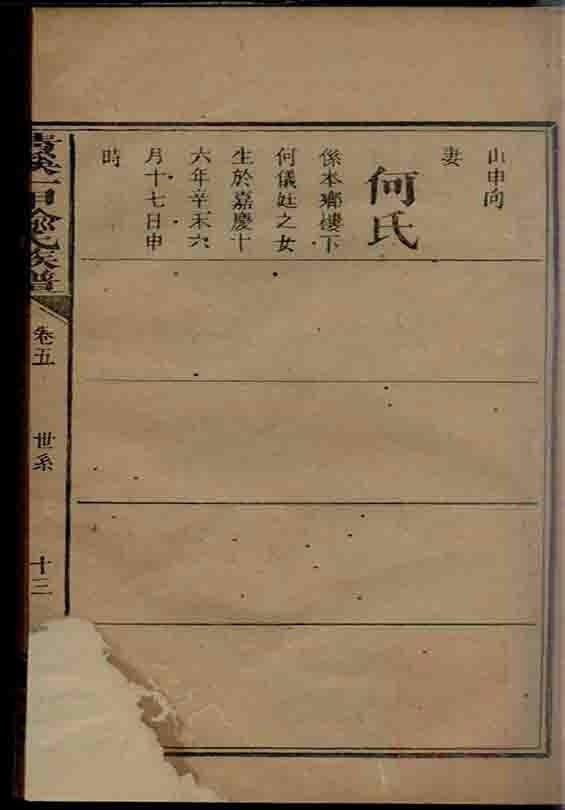 山申向
妻
何氏
係本鄉樓下
何儀廷之女
生於嘉慶十
六年辛未六
月十七日申
時
氏族譜
卷五
世系
十三